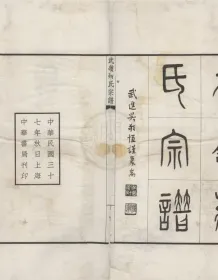 氏宗譜
武進吳敬恆謹篆耑
武嶺蔣氏宗譜
中華民國三十
七年秋日上海
中華書局刊印